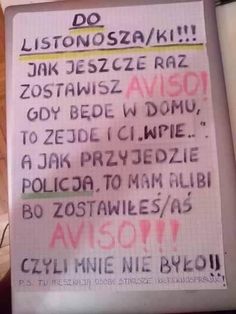 DO
LISTONOSZA/KI!!!
JAK JESZCZE RAZ
ZOSTAWISZ AVISO!
GDY BĘDE W DOMU,
TO ZEJDE I CI „WPIE.."
A JAK PRZYJEDZIE
POLICJA, TO MAM ALIBI
BO ZOSTAWIŁEŚ/AŚ
AVISO!!!
CZYLI MNIE NIE BYŁO!!
P.S. TU MIESZKAJĄ OSOBY STARSZE I NIEPEŁNOSPRAWNE!